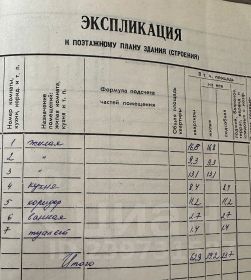 ЭКСПЛИКАЦИЯ
К ПОЭТАЖНОМУ ПЛАНУ ЗДАНИЯ (СТРОЕНИЯ)
Номер комнаты, кухни, корид. и т. п.
Назначение помещений: жилая комната, кухня и т. п.
Формула подсчета частей помещений
Общая площадь квартиры
В т. ч. площадь
1 жилая 16.8 16.8
2 " 9.3 9.3
3 " 13.1 13.1
4 кухня 8.4 8.4
5 коридор 11.2 11.2
6 ванная 2.7 2.7
7 туалет 1.4 1.4
Итого 62.9 39.2 23.7